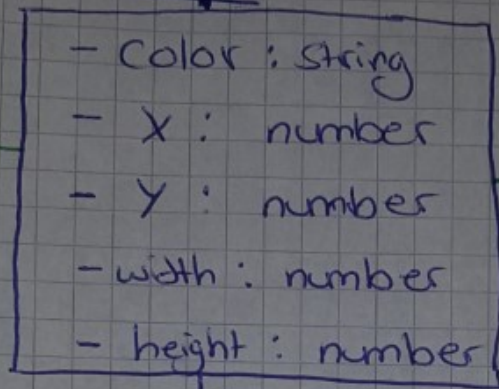 - color : string
- X : number
- Y : number
- width : number
- height : number